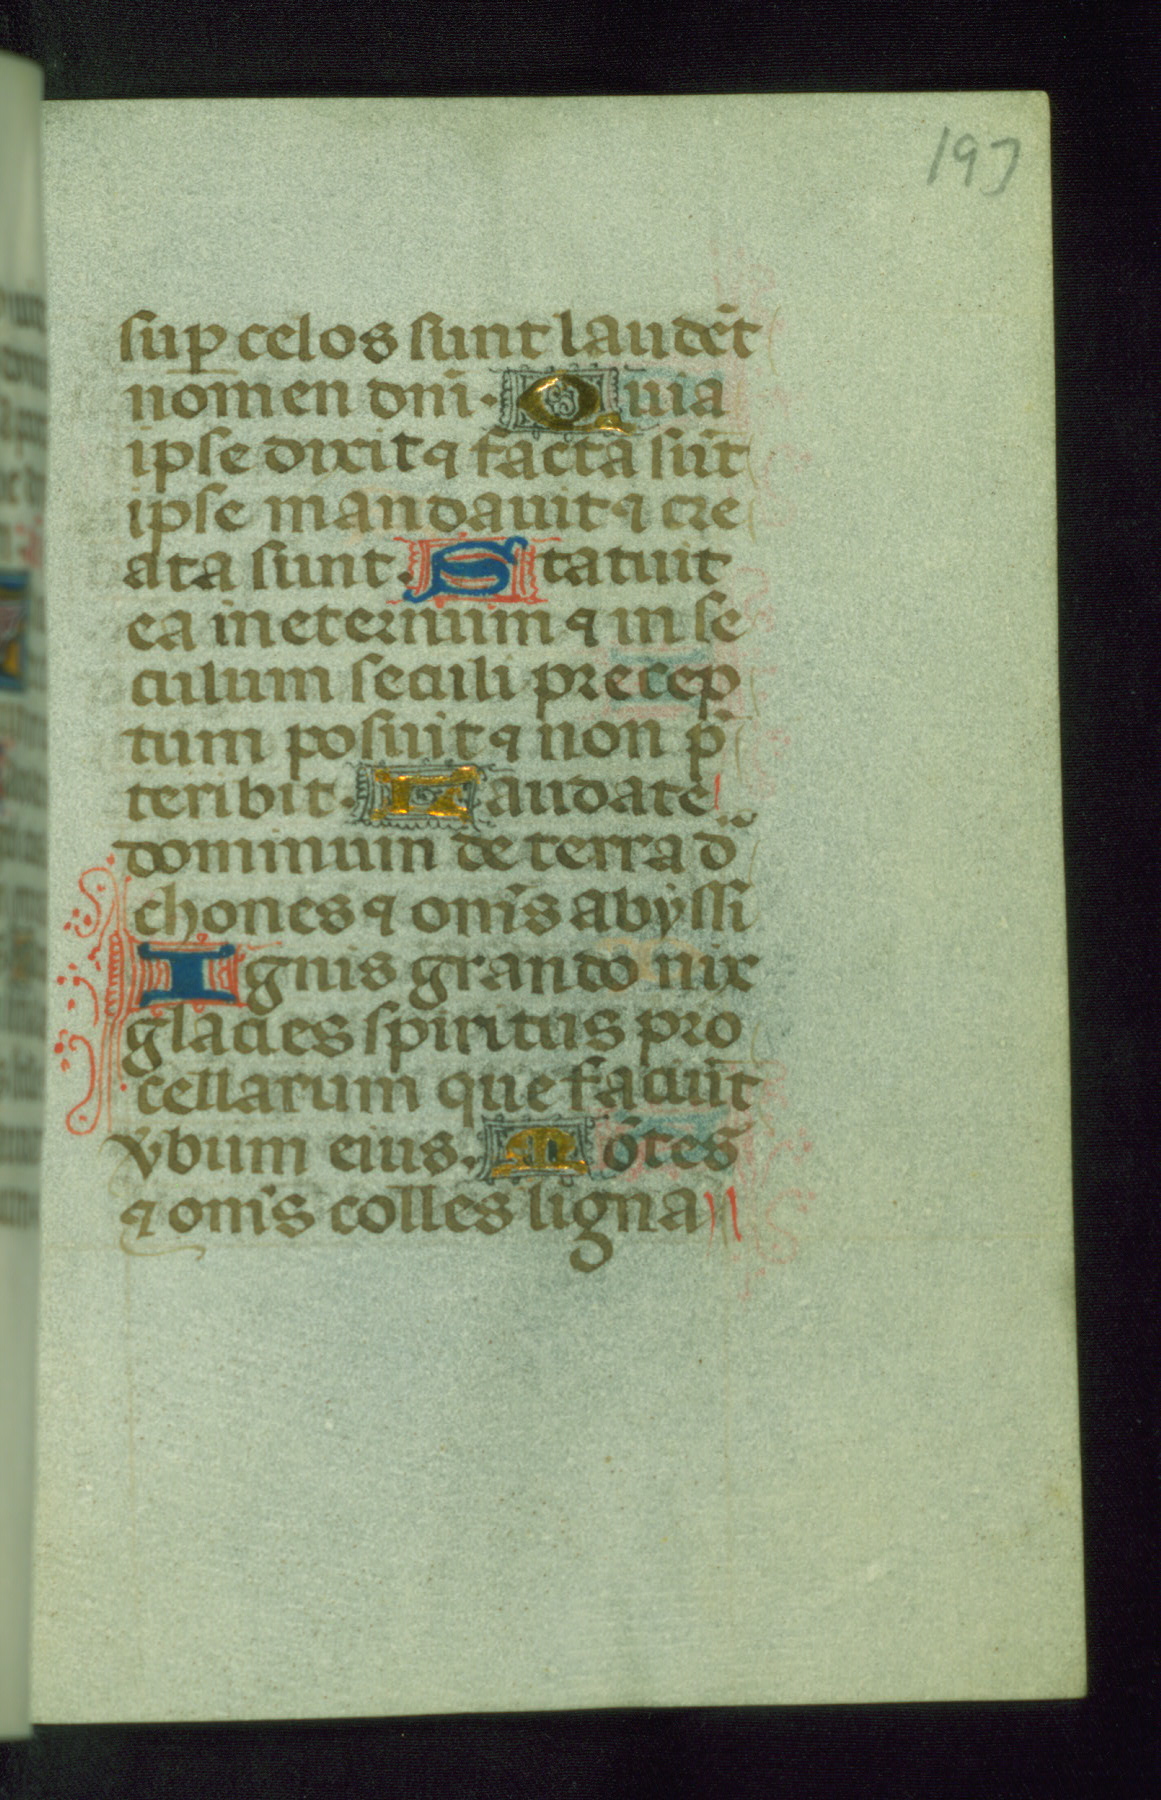 197
sup celos sunt laudēt
nomen dnī. Quia
ipse dixit ⁊ facta sūt
ipse mandauit ⁊ cre
ata sunt. Statuit
ea in eternum ⁊ in se
culum seculi precep
tum posuit ⁊ non p̄
teribit. Laudate
dominum de terra d
chones ⁊ omīs abyssi
Ignis grando nix
glacies spiritus pro
cellarum que faciūt
vbum eius. Mōtes
⁊ omīs colles ligna